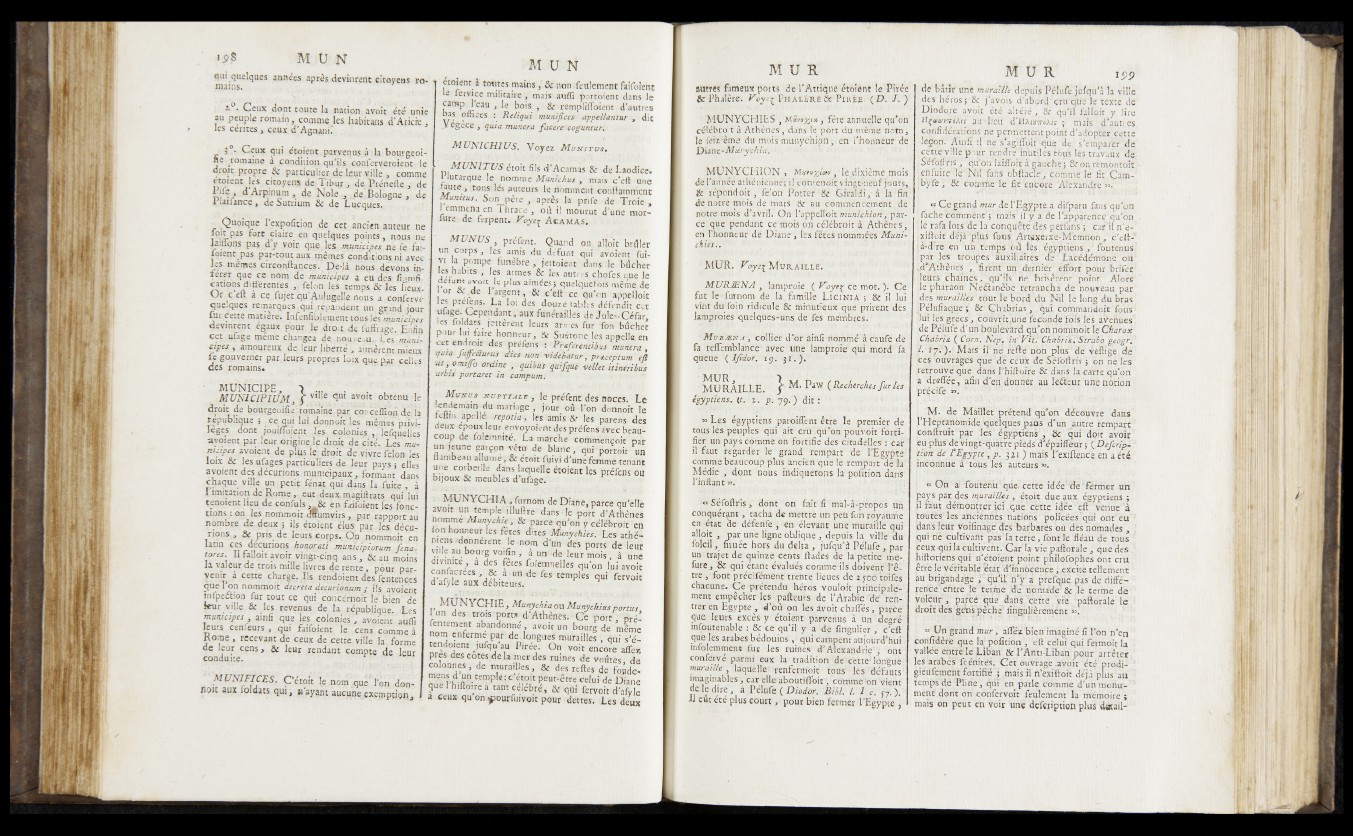 198 M U N
qui quelques années après devinrent citoyens ro-
mains.
2°. Ceux dont toute la nation avoit été unie
au peuple romain, comme les habitans d'Aricie,
les cérites, ceux d'Agnani.
3°. Ceux qui étoient parvenus à la bourgeoi-
ſie romaine à condition qu'ils conſerveroient le
droit propre & particulier de leur ville, comme
étoient les citoyens de Tibur, de Préneſte, de
Piſe, d'Arpinum, de Nole, de Bologne, de
Plaiſance, de Sutrium & de Lucques.
Quoique l'expoſition de cet ancien auteur ne
ſoit pas fort claire en quelques points, nous ne
laiſſons pas d'y voir que les municipes ne ſe fai-
ſoient pas par-tout aux mêmes conditions ni avec
les mêmes circonſtances. De-là nous devons in-
férer que ce nom de municipes a eu des ſignifi-
cations différentes, ſelon les temps & les lieux.
Or c'eſt à ce ſujet qu'Aulugelle nous a conſervé
quelques remarques qui répandent un grand jour
ſur cette matière. Inſenſiblement tous les municipes
devinrent égaux pour le droit de ſuffrage. Enfin
cet uſage même changea de nouveau. Les muni-
cipes, amoureux de leur liberté, aimèrent mieux
ſe gouverner par leurs propres loix que par celles
des romains.
MUNICIPE,
MUNICIPIUM, } ville qui avoit obtenu le
droit de bourgeoiſie romaine par conceſſion de la
république ; ce qui lui donnoit les mêmes privi-
lèges dont jouiſſoient les colonies, leſquelles
avoient par leur origine le droit de cité. Les mu-
nicipes avoient de plus le droit de vivre ſelon les
loix & les uſages particuliers de leur pays ; elles
avoient des décurions municipaux, formant dans
chaque ville un petit ſénat qui dans la ſuite, à
l'imitation de Rome, eut deux magiſtrats qui lui
tenoient lieu de conſuls, & en faiſoient les fonc-
tions : on les nommoit duumvirs, par rapport au
nombre de deux ; ils étoient élus par les décu-
rions, & pris de leurs corps. On nommoit en
latin ces décurions honorati municipiorum ſena-
tores. Il falloit avoir vingt-cinq ans, & au moins
la valeur de trois mille livres de rente, pour par-
venir à cette charge. Ils rendoient des ſentences
que l'on nommoit decreta decurionum ; ils avoient
inſpection ſur tout ce qui concernoit le bien de
leur ville & les revenus de la république. Les
municipes, ainſi que les colonies, avoient auſſi
leurs cenſeurs, qui faiſoient le cens comme à
Rome, recevant de ceux de cette ville la forme
de leur cens, & leur rendant compte de leur
conduite.
MUNIFICES. C'étoit le nom que l'on don-
noit aux ſoldats qui, n'ayant aucune exemption,
M U N
étoient à toutes mains, & non ſeulement faiſoient
le ſervice militaire, mais auſſi portoient dans le
camp l'eau, le bois, & rempliſſoient d'autres
bas offices : Reliqui munifices appellantur, dit
Végèce, quia munera facere coguntur.
MUNICHIUS. Voyez MUNITUS.
MUNITUS étoit fils d'Acamas & de Laodice.
Plutarque le nomme Manichus, mais c'eſt une
faute, tous les auteurs le nomment conſtamment
Munitus. Son père, après la priſe de Troie,
l'emmena en Thrace, où il mourut d'une mor-
ſure de ſerpent. Voyez ACAMAS.
MUNUS, préſent. Quand on alloit brûler
un corps, les amis du défunt qui avoient ſui-
vi la pompe funèbre, jettoient dans le bûcher
les habits, les armes & les autres choſes que le
défunt avoit le plus aimées ; quelquefois même de
l'or & de l'argent, & c'eſt ce qu'on appelloit
les préſens. La loi des douze tables défendit cet
uſage. Cependant, aux funérailles de Jules-Céſar,
les ſoldats jettèrent leurs armes ſur ſon bûcher
pour lui faire honneur, & Suétone les appelle en
cet endroit des préſens : Præferentibus munera,
quia ſuffecturus dies non videbatur, præceptum eſt
ut, omiſſo ordine, quibus quiſque vellet itineribus
urbis portaret in campum.
MUNUS NUPTIALE, le préſent des noces. Le
lendemain du mariage, jour où l'on donnoit le
feſtin apellé repotia, les amis & les parens des
deux époux leur envoyoient des préſens avec beau-
coup de ſolemnité. La marche commençoit par
un jeune garçon vêtu de blanc, qui portoit un
flambeau allumé, & étoit ſuivi d'une femme tenant
une corbeille dans laquelle étoient les préſens ou
bijoux & meubles d'uſage.
MUNYCHIA, ſurnom de Diane, parce qu'elle
avoit un temple illuſtre dans le port d'Athènes
nommé Munychie, & parce qu'on y célébroit en
ſon honneur les fêtes dites Munychies. Les athé-
niens donnèrent le nom d'un des ports de leur
ville au bourg voiſin, à un de leur mois, à une
divinité, à des fêtes ſolemnelles qu'on lui avoit
conſacrées, & à un de ſes temples qui ſervoit
d'aſyle aux débiteurs.
MUNYCHIE, Munychia ou Munychius portus,
l'un des trois ports d'Athènes. Ce port, pré-
ſentement abandonné, avoit un bourg de même
nom enfermé par de longues murailles, qui s'é-
tendoient juſqu'au Pirée. On voit encore aſſez
près des côtes de la mer des ruines de voûtes, de
colonnes, de murailles, & des reſtes de fonde-
mens d'un temple : c'étoit peut-être celui de Diane
que l'hiſtoire a tant célébré, & qui ſervoit d'aſyle
à ceux qu'on pourſuivoit pour dettes. Les deux
M U R
autres fameux ports de l'Attique étoient le Pirée
& Phalère. Voyez PHALERE & PIRÉE. ( D. J. )
MUNYCHIES, Μυνυχια, fête annuelle qu'on
célébroit à Athènes, dans le port du même nom,
le ſeizième du mois munychion, en l'honneur de
Diane-Munychia.
MUNYCHION, Μυνυχιων, le dixième mois
de l'année athénienne ; il contenoit vingt-neuf jours,
& répondoit, ſelon Potter & Giraldi, à la fin
de notre mois de mars & au commencement de
notre mois d'avril. On l'appelloit munichion, par-
ce que pendant ce mois on célébroit à Athènes,
en l'honneur de Diane, les fêtes nommées Muni-
chies.
MUR. Voyez MURAILLE.
MURÆNA, lamproie ( Voyez ce mot. ). Ce
fut le ſurnom de la famille LICINIA ; & il lui
vint du ſoin ridicule & minutieux que prirent des
lamproies quelques-uns de ſes membres.
MURÆNA, collier d'or ainſi nommé à cauſe de
ſa reſſemblance avec une lamproie qui mord ſa
queue ( Iſidor. 19. 31. ).
MUR,
MURAILLE. } M. Paw ( Recherches ſur les
égyptiens. tt. 2. p. 79. ) dit :
» Les égyptiens paroiſſent être le premier de
tous les peuples qui ait cru qu'on pouvoit forti-
fier un pays comme on fortifie des citadelles : car
il faut regarder le grand rempart de l'Egypte
comme beaucoup plus ancien que le rempart de la
Médie, dont nous indiquetons la poſition dans
l'inſtant ».
« Séſoſtris, dont on fait ſi mal-à-propos un
conquérant, tacha de mettre un peu ſon royaume
en état de défenſe, en élevant une muraille qui
alloit, par une ligne oblique, depuis la ville du
ſoleil, ſituée hors du delta, juſqu'à Péluſe, par
un trajet de quinze cents ſtades de la petite me-
ſure, & qui étant évalués comme ils doivent l'ê-
tre, font préciſément trente lieues de 2500 toiſes
chacune. Ce prétendu héros vouloit principale-
ment empêcher les paſteurs de l'Arabie de ren-
trer en Egypte, d'où on les avoit chaſſés, parce
que leurs excès y étoient parvenus à un degré
inſoutenable : & ce qu'il y a de ſingulier, c'eſt
que les arabes bédouins, qui campent aujourd'hui
inſolemment ſur les ruines d'Alexandrie, ont
conſervé parmi eux la tradition de cette longue
muraille, laquelle renfermoit tous les défauts
imaginables, car elle aboutiſſoit, comme on vient
de le dire, à Péluſe ( Diodor. Bibl. l. I c. 57. ).
Il eût été plus court, pour bien fermer l'Egypte,
M U R 199
de bâtir une muraille depuis Péluſe juſqu'à la ville
des héros ; & j'avois d'abord cru que le texte de
Diodore avoit été altéré, & qu'il falloit y lire
au lieu d' ; mais d'autres
conſidérations ne permettent point d'adopter cette
leçon. Auſſi il ne s'agiſſoit que de s'emparer de
cette ville pour rendre inutiles tous les travaux de
Séſoſtris, qu'on laiſſoit à gauche ; & on remontoit
enſuite le Nil ſans obſtacle, comme le fit Cam-
byſe, & comme le fit encore Alexandre ».
« Ce grand mur de l'Egypte a diſparu ſans qu'on
ſache comment ; mais il y a de l'apparence qu'on
le raſa lors de la conquête des perſans ; car il n'e-
xiſtoit déjà plus ſous Artaxerxe-Memnon, c'eſt-
à-d're en un temps où les égyptiens, ſoutenus
par les troupes auxiliaires de Lacédémone ou
d'Athènes, firent un dernier effort pour briſer
leurs chaînes, qu'ils ne briſèrent point. Alors
le pharaon Nectanèbe retrancha de nouveau par
des murailles tout le bord du Nil le long du bras
Péluſiaque ; & Chabrias, qui commandoit ſous
lui les grecs, couvrit une ſeconde fois les avenues
de Péluſe d'un boulevard qu'on nommoit le Charax
Chabriæ ( Corn. Nep. in Vit. Chabriæ. Strabo geogr.
l. 17. ). Mais il ne reſte non plus de veſtige de
ces ouvrages que de ceux de Séſoſtris ; on ne les
retrouve que dans l'hiſtoire & dans la carte qu'on
a dreſſée, afin d'en donner au lecteur une notion
préciſe ».
M. de Maillet prétend qu'on découvre dans
l'Heptanomide quelques paus d'un autre rempart
conſtruit par les égyptiens, & qui doit avoir
eu plus de vingt-quatre pieds d'épaiſſeur ; ( Deſcrip-
tion de l'Egypte, p. 321 ) mais l'exiſtence en a été
inconnue à tous les auteurs ».
« On a ſoutenu que cette idée de fermer un
pays par des murailles, étoit due aux égyptiens ;
il faut démontrer ici que cette idée eſt venue à
toutes les anciennes nations policées qui ont eu
dans leur voiſinage des barbares ou des nomades,
qui ne cultivant pas la terre, ſont le fléau de tous
ceux qui la cultivent. Car la vie paſtorale, que des
hiſtoriens qui n'étoient point philoſophes ont cru
être le véritable état d'innocence, excite tellement
au brigandage, qu'il n'y a preſque pas de diffé-
rence entre le terme de nomade & le terme de
voleur, parce que dans cette vie paſtorale le
droit des gens pêche ſingulièrement ».
« Un grand mur, aſſez bien imaginé ſi l'on n'en
conſidère que la poſition, eſt celui qui fermoit la
vallée entre le Liban & l'Anti-Liban pour arrêter
les arabes ſcénites. Cet ouvrage avoit été prodi-
gieuſement fortifié ; mais il n'exiſtoit déjà plus au
temps de Pline, qui en parle comme d'un monu-
ment dont on conſervoit ſeulement la mémoire ;
mais on peut en voir une deſcription plus détail-